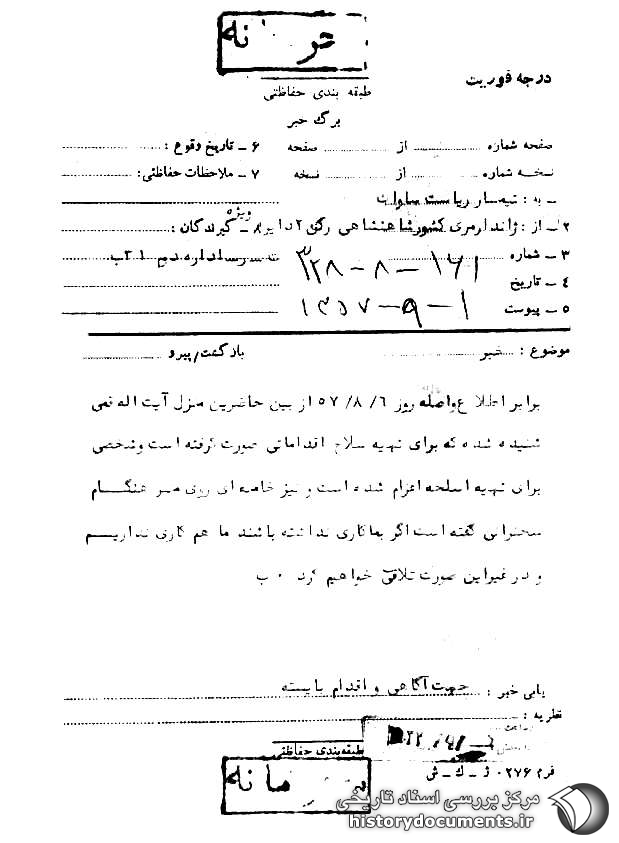 طبقه بندی حفاظتی
درجه فوریت
برگ خبر
صفحه شماره از صفحه ۶ ـ تاریخ وقوع :
نسخه شماره از نسخه ۷ ـ ملاحظات حفاظتی :
ـ به : تیمسار ریاست ساواک
۲ـ از : ژاندارمری کشور شاهنشاهی رکن ۲ دایره ویژه ۸ ـ گیرندگان :
۳ ـ شماره ۱۶۱ - ۸ - ۳۲۸
۴ ـ تاریخ
۵ ـ پیوست ۱ - ۹ - ۱۳۵۷
موضوع : خبر بازگشت/پیرو
برابر اطلاع واصله روز ۶/ ۸/ ۵۷ از بین حاضرین منزل آیت اله قمی
شنیده شده که برای تهیه سلاح اقداماتی صورت گرفته است و شخصی
برای تهیه اسلحه اعزام شده است و نیز خامنه ای روی منبر هنگام
سخنرانی گفته است اگر بما کاری نداشته باشند ما هم کاری نداریم
و در غیر این صورت تلاقی خواهیم کرد ۰ ب
یابی خبر : جهت آگاهی و اقدام بایسته
نظریه :
طبقه بندی حفاظتی
فرم ۰۲۷۶ ژ ـ ك ـ ش
مرکز بررسی اسناد تاریخی
historydocuments.ir